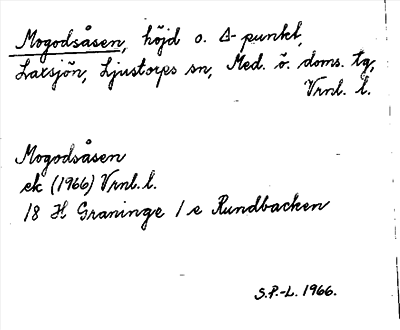 Mogodsåsen, höjd o. Δ-punkt,
Laxsjön, Ljustorps sn, Med. ö. doms. tg,
Vrnl. l.
Mogodsåsen
ek (1966) Vrnl. l.
18 H Graninge 1 e Rundbacken
S.P.-L. 1966.